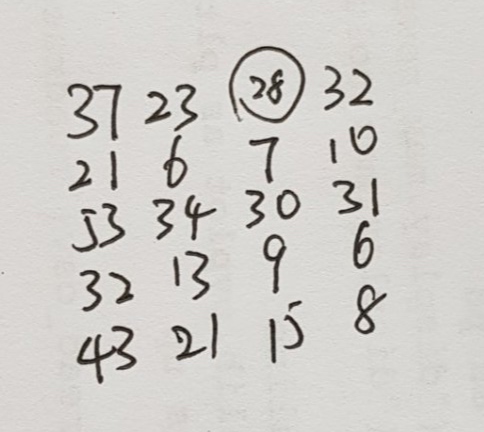 37 23 28 32
21 6 7 10
53 34 30 31
32 13 9 6
43 21 15 8